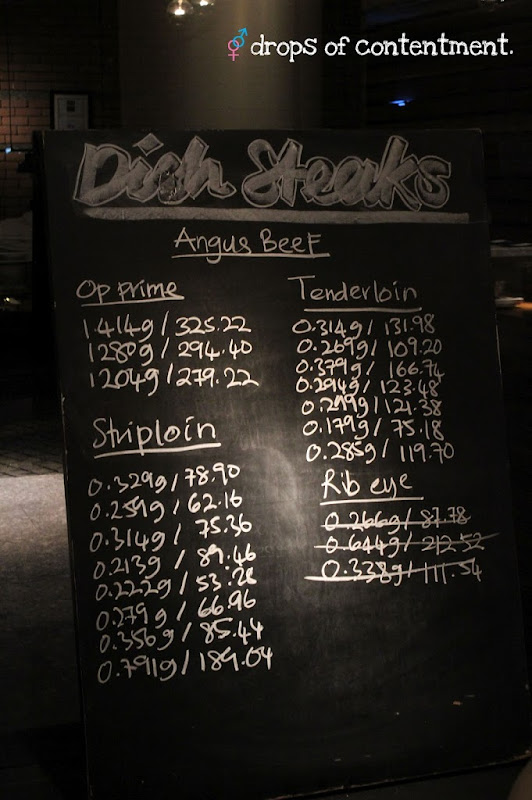 drops of contentment.
Dish Steaks
Angus Beef
Op prime
1.414g / 325.22
1280g / 294.40
1204g / 279.22
Striploin
0.329g / 78.90
0.259g / 62.16
0.314g / 75.36
0.213g / 89.46
0.222g / 53.28
0.279g / 66.96
0.356g / 85.44
0.791g / 189.84
Tenderloin
0.314g / 131.98
0.269g / 109.20
0.379g / 166.74
0.294g / 123.48
0.289g / 121.38
0.179g / 75.18
0.285g / 119.70
Rib eye
0.266g / 87.78
0.644g / 212.52
0.338g / 111.54